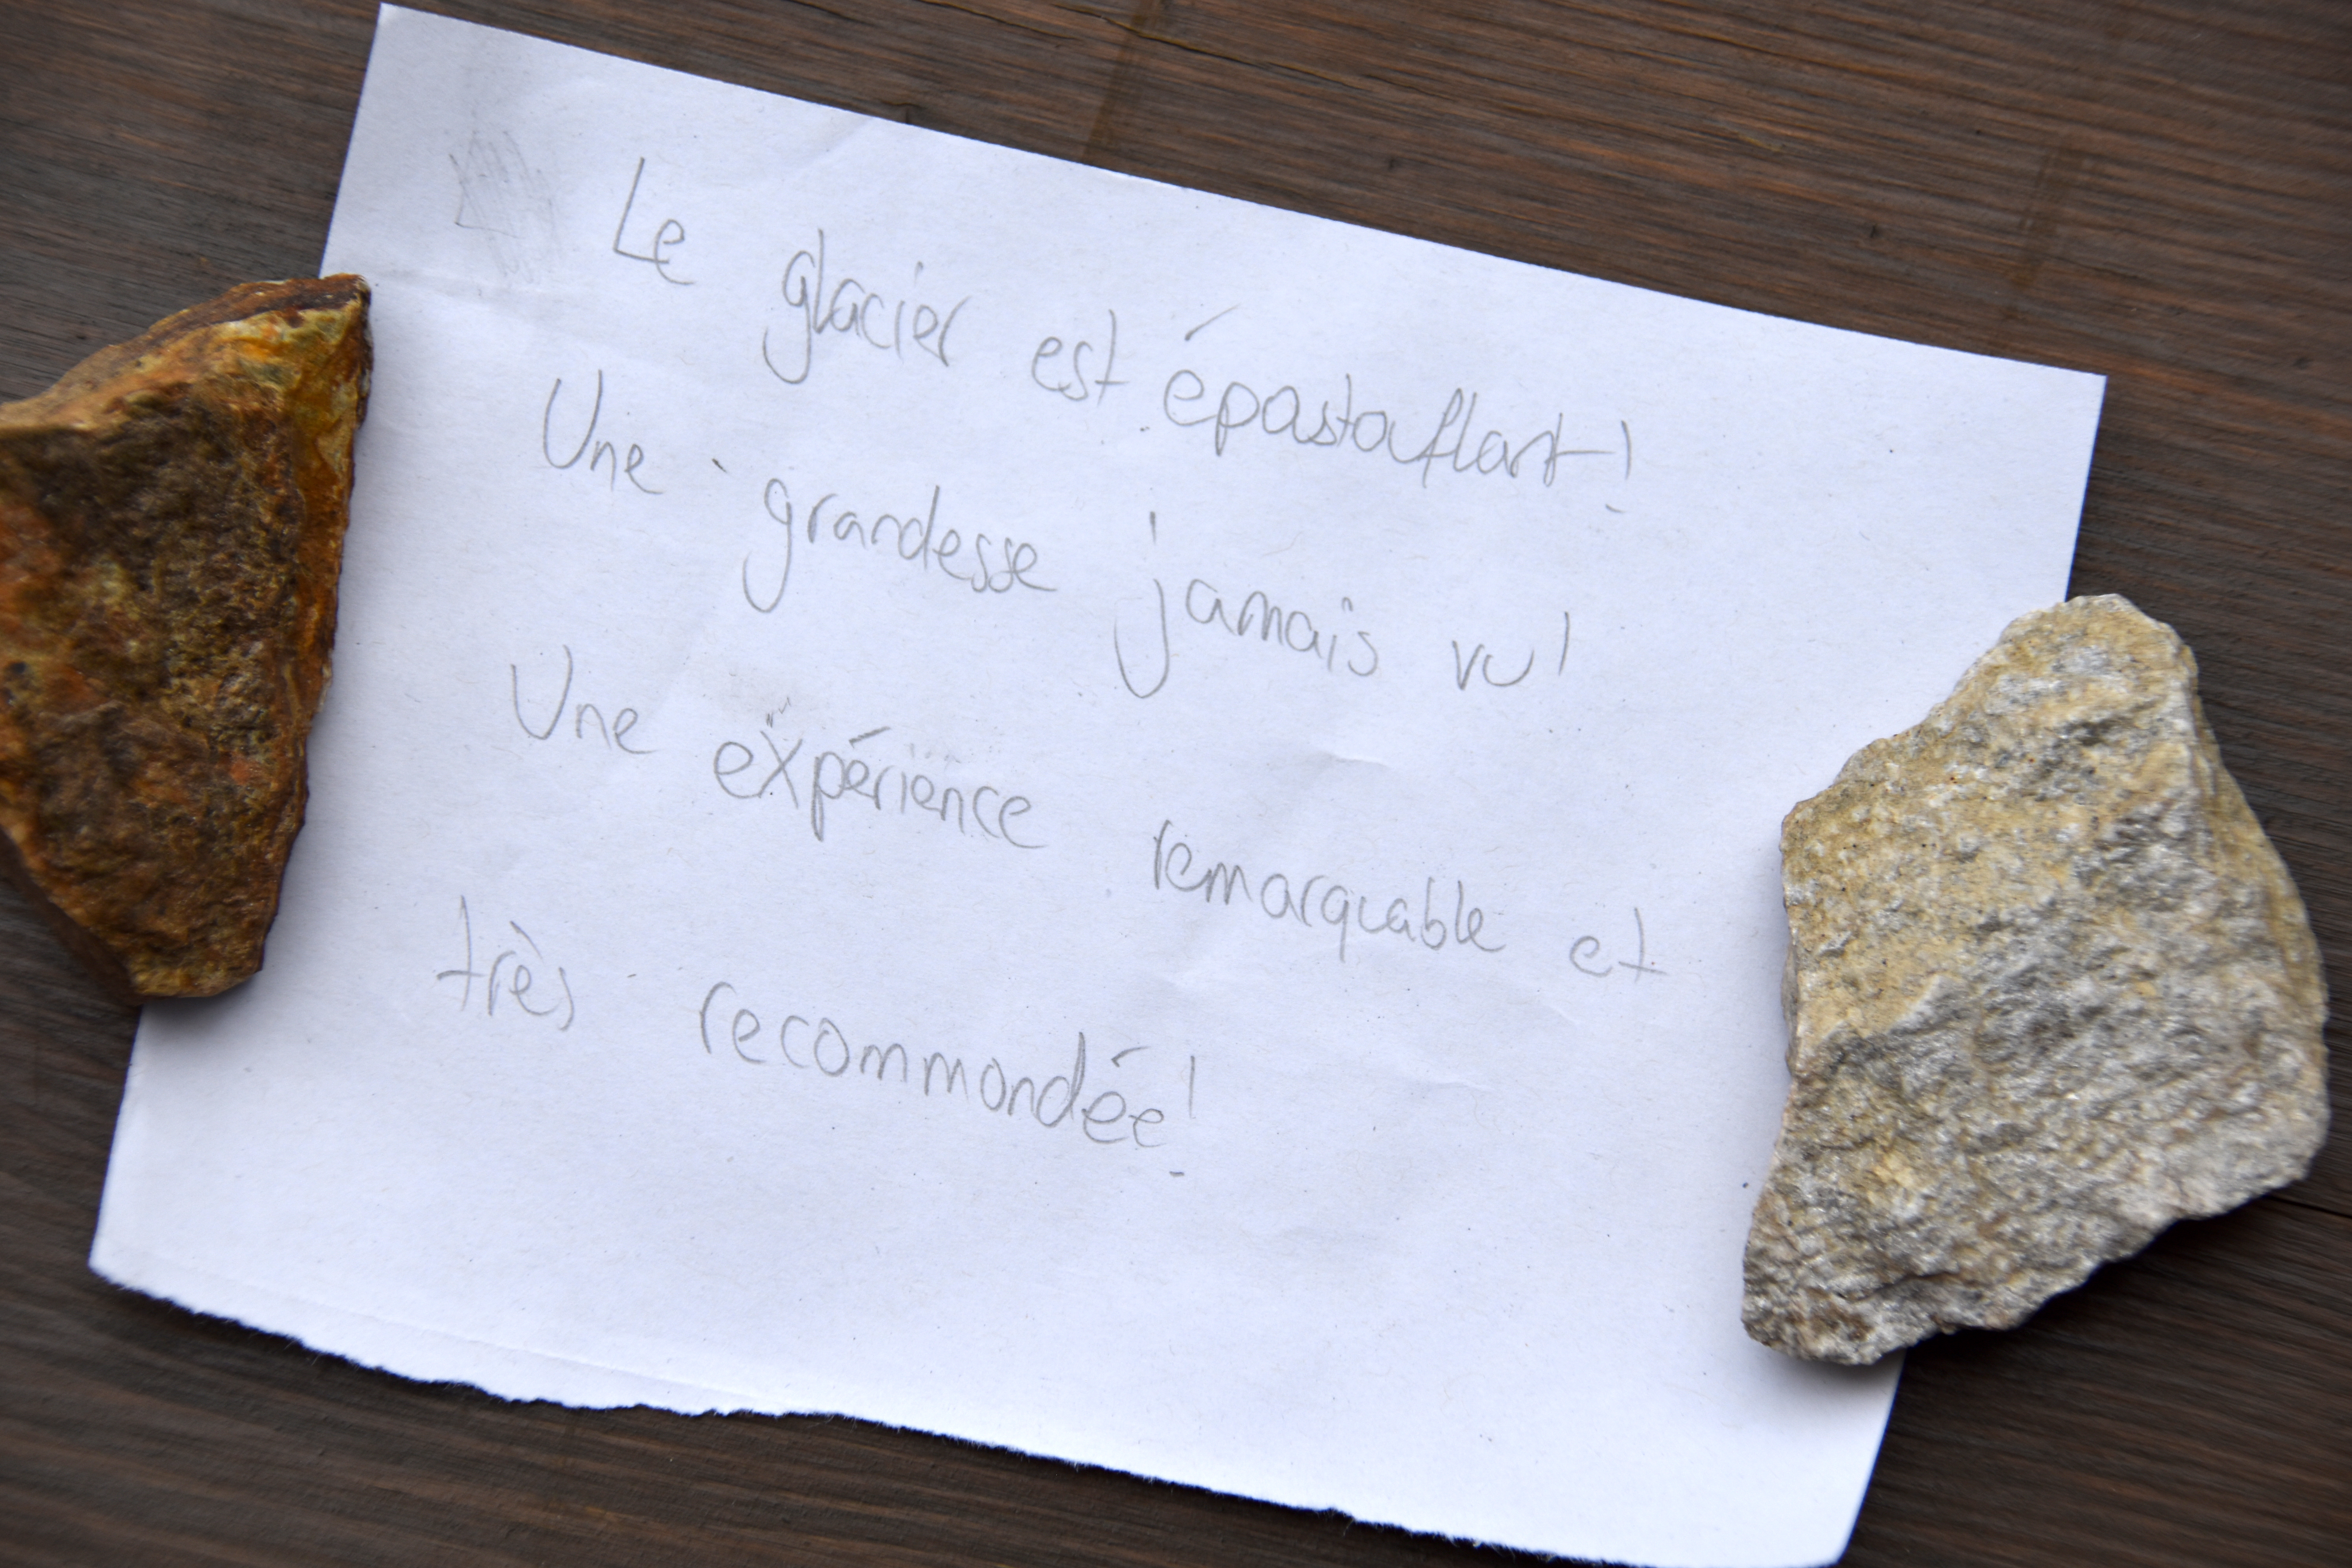 Le glacier est épastouflant!
Une grandesse jamais vu!
Une expérience remarquable et
très recommondée!